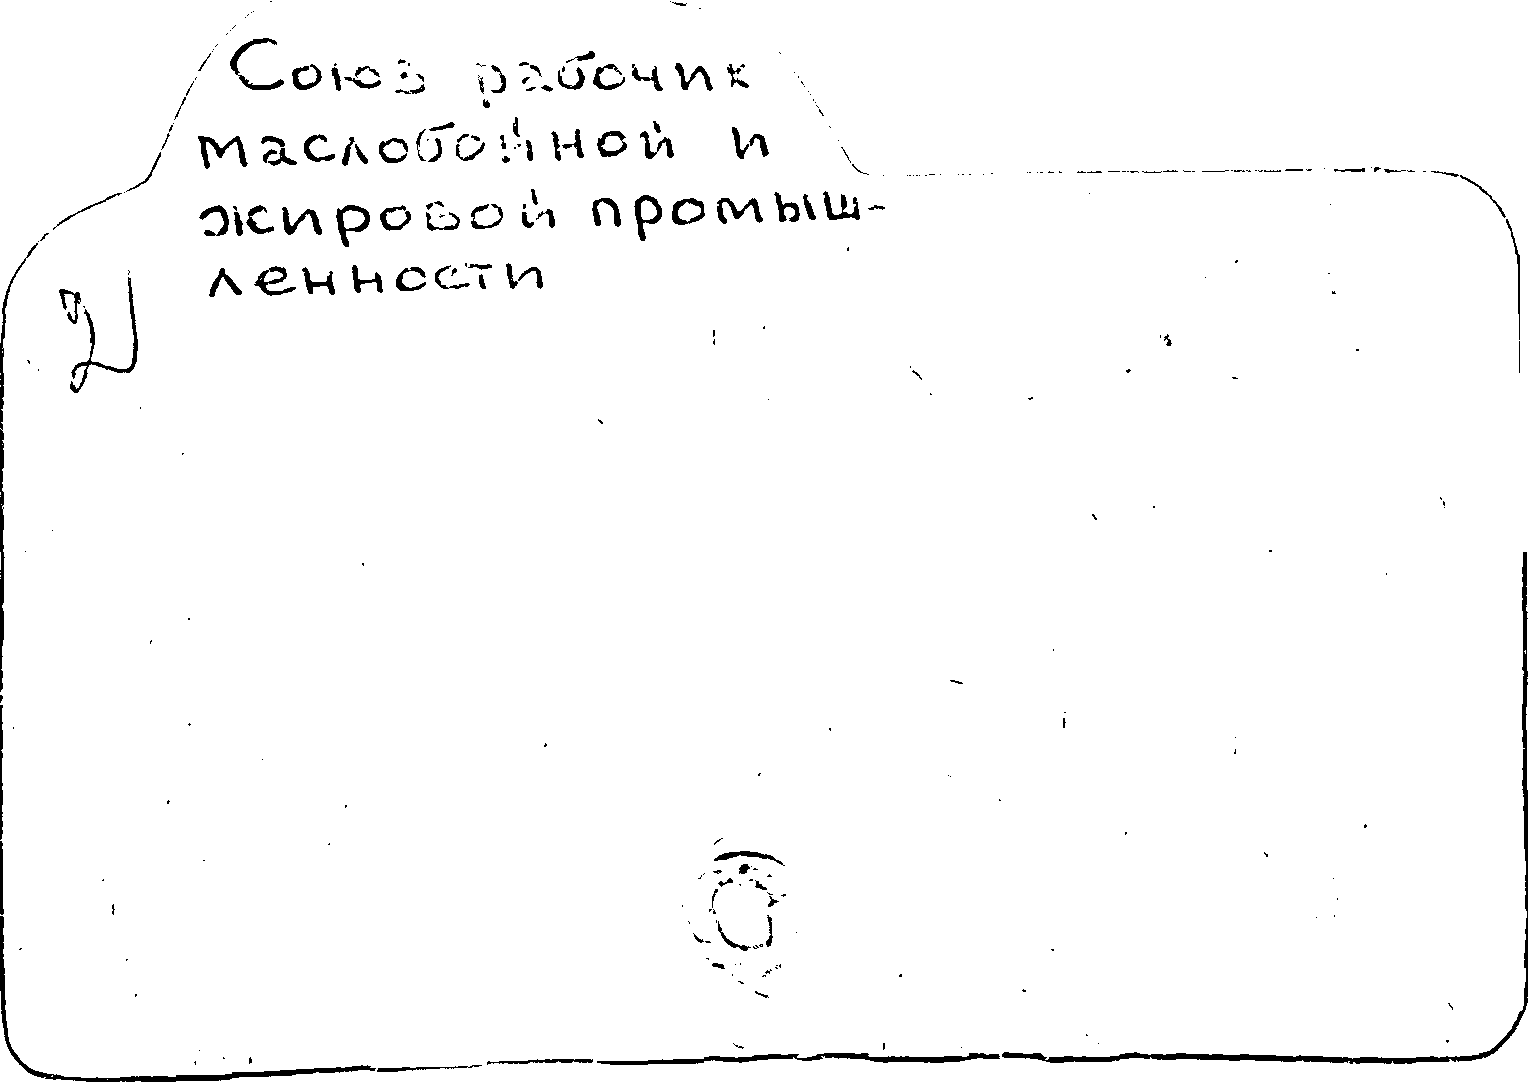 Союз рабочих
маслобойной и
жировой промыш-
ленности